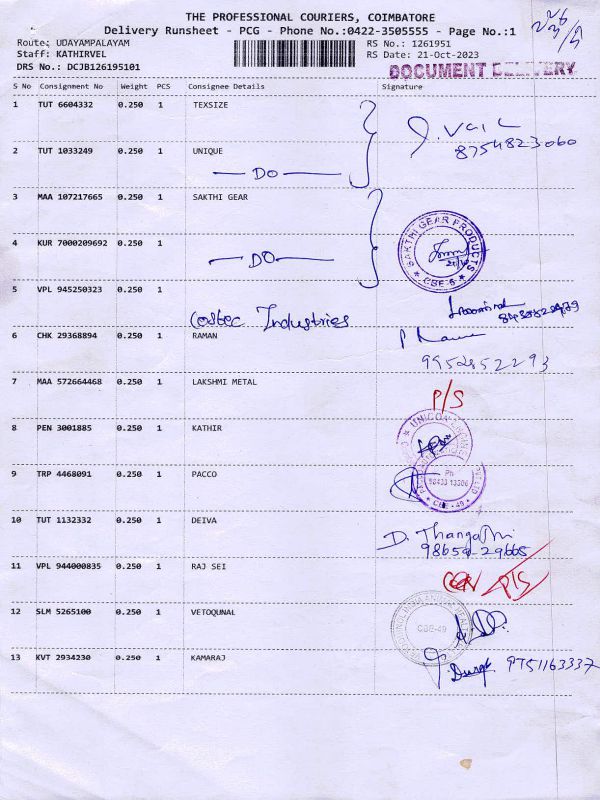 THE PROFESSIONAL COURIERS, COIMBATORE
Delivery Runsheet - PCG - Phone No.:0422-3505555 - Page No.:1
Route: UDAYAMPALAYAM
RS No.: 1261951
Staff: KATHIRVEL
RS Date: 21-Oct-2023
DRS No.: DCJB126195101
DOCUMENT DELIVERY
S No Consignment No Weight PCS Consignee Details Signature
1 TUT 6604332 0.250 1 TEXSIZE
8754823060
2 TUT 1033249 0.250 1 UNIQUE
DO
3 MAA 107217665 0.250 1 SAKTHI GEAR
SAKTHI GEAR PRODUCTS
CBE-6
4 KUR 7000209692 0.250 1
DO
5 VPL 945250323 0.250 1
Costec Industries
6 CHK 29368894 0.250 1 RAMAN
9952852293
7 MAA 572664468 0.250 1 LAKSHMI METAL
P/S
8 PEN 3001885 0.250 1 KATHIR
9 TRP 4468091 0.250 1 PACCO
Ph
98433 13306
CBE - 49
10 TUT 1132332 0.250 1 DEIVA
D. Thangathi
98659-29665
11 VPL 944000835 0.250 1 RAJ SEI
P/S
12 SLM 5265100 0.250 1 VETOQUNAL
CBE-49
13 KVT 2934230 0.250 1 KAMARAJ
9751163337